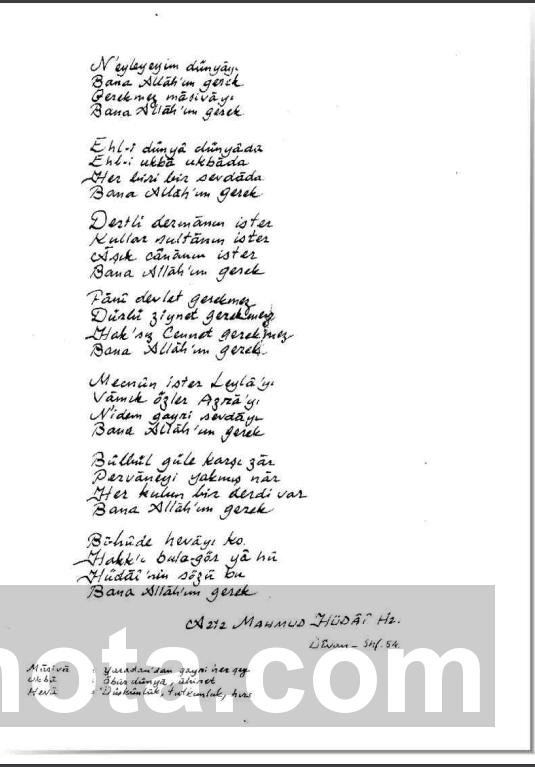 N'eyleyeyim dünyâyı
Bana Allâh'ım gerek
Gerekmez mâsivâyı
Bana Allâh'ım gerek
Ehl-i dünyâ dünyâda
Ehl-i ukbâ ukbâda
Her biri bir sevdâda
Bana Allâh'ım gerek
Dertli dermânın ister
Kullar sultânın ister
Âşık cânânın ister
Bana Allâh'ım gerek
Fânî devlet gerekmez
Dürlü ziynet gerekmez
Hak'sız Cennet gerekmez
Bana Allâh'ım gerek
Mecnûn ister Leylâ'yı
Vâmık özler Azrâ'yı
N'idem gayri sevdâyı
Bana Allâh'ım gerek
Bülbül güle karşı zâr
Pervâneyi yakmış nâr
Her kulun bir derdi var
Bana Allâh'ım gerek
Bîhûde hevâyı ko
Hakk'ı bula-gör yâ hû
Hüdâî'nin sözü bu
Bana Allâh'ım gerek
AZİZ MAHMUD HÜDÂÎ Hz.
Dîvan - Shf. 54
Mâsivâ : Yaradan'dan gayri her şey
Ukbâ : Öbür dünyâ, âhiret
Hevâ : Düşkünlük, tutkunluk, hırs
nota.com